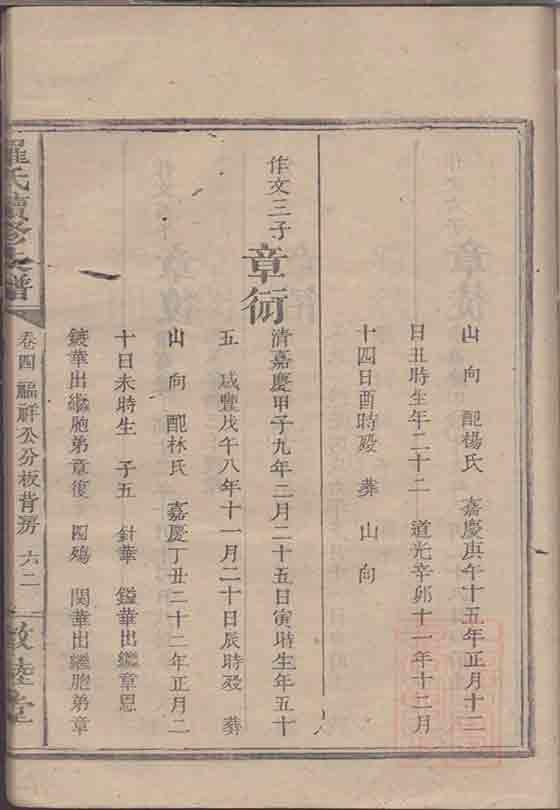 山　向　配楊氏　嘉慶庚午十五年正月十二
日丑時生年二十二　道光辛卯十一年十二月
十四日酉時殁　葬　山　向
作文三子
章衍
清嘉慶甲子九年二月二十五日寅時生年五十
五　咸豐戊午八年十一月二十日辰時殁　葬
山　向　配林氏　嘉慶丁丑二十二年正月二
十日未時生　子五　針華　鎰華出繼章恩
鍍華出繼胞弟章復　四殤　関華出繼胞弟章
羅氏續修族譜
卷四　福祥公分板背房　六二
敦睦堂